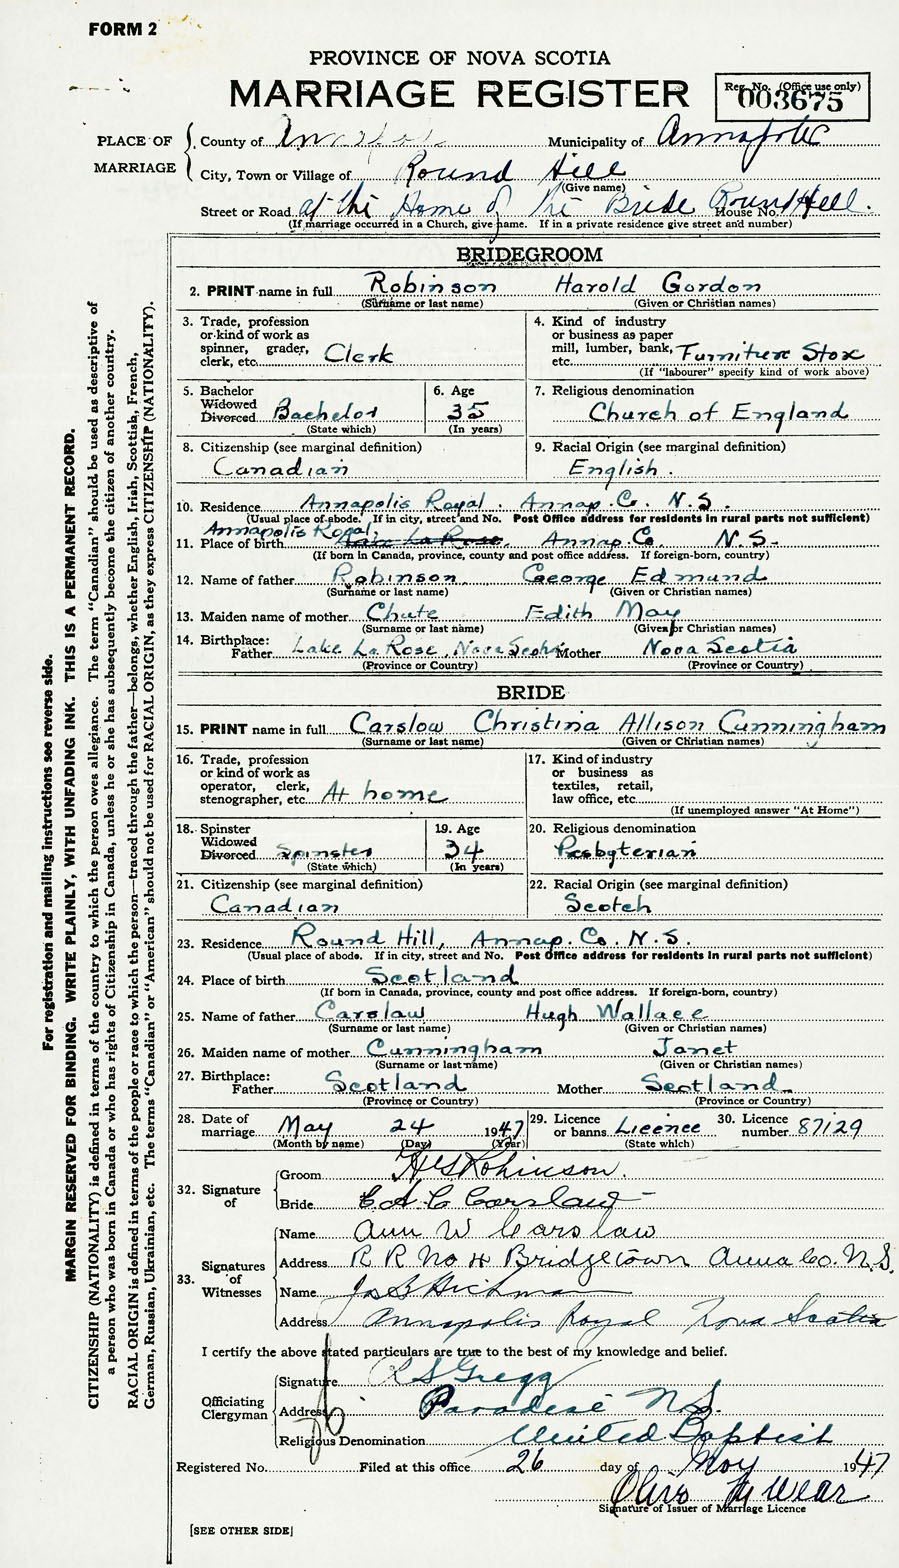 FORM 2
PROVINCE OF NOVA SCOTIA
MARRIAGE REGISTER
Reg. No. (Office use only)
003675
PLACE OF MARRIAGE
County of Annapolis Municipality of Annapolis
City, Town or Village of Round Hill
(Give name)
Street or Road at the Home of the Bride House No. Round Hill.
(If marriage occurred in a Church, give name. If in a private residence give street and number)
BRIDEGROOM
2. PRINT name in full Robinson Harold Gordon
(Surname or last name) (Given or Christian names)
3. Trade, profession or kind of work as spinner, grader, clerk, etc. Clerk
4. Kind of industry or business as paper mill, lumber, bank, etc. Furniture Store
(If "labourer" specify kind of work above)
5. Bachelor Widowed Divorced Bachelor
(State which)
6. Age 35
(In years)
7. Religious denomination
Church of England
8. Citizenship (see marginal definition)
Canadian
9. Racial Origin (see marginal definition)
English.
10. Residence Annapolis Royal. Annap. Co. N.S.
(Usual place of abode. If in city, street and No. Post Office address for residents in rural parts not sufficient)
Annapolis Royal,
11. Place of birth Lake La Rose, Annap. Co. N.S.
(If born in Canada, province, county and post office address. If foreign-born, country)
12. Name of father Robinson, George Edmund
(Surname or last name) (Given or Christian names)
13. Maiden name of mother Chute Edith May
(Surname or last name) (Given or Christian names)
14. Birthplace:
Father Lake La Rose, Nova Scotia Mother Nova Scotia
(Province or Country) (Province or Country)
BRIDE
15. PRINT name in full Carslow Christina Allison Cunningham
(Surname or last name) (Given or Christian names)
16. Trade, profession or kind of work as operator, clerk, stenographer, etc. At home
17. Kind of industry or business as textiles, retail, law office, etc.
(If unemployed answer "At Home")
18. Spinster Widowed Divorced Spinster
(State which)
19. Age 34
(In years)
20. Religious denomination
Presbyterian
21. Citizenship (see marginal definition)
Canadian
22. Racial Origin (see marginal definition)
Scotch
23. Residence Round Hill, Annap. Co. N.S.
(Usual place of abode. If in city, street and No. Post Office address for residents in rural parts not sufficient)
24. Place of birth Scotland
(If born in Canada, province, county and post office address. If foreign-born, country)
25. Name of father Carslaw Hugh Wallace
(Surname or last name) (Given or Christian names)
26. Maiden name of mother Cunningham Janet
(Surname or last name) (Given or Christian names)
27. Birthplace:
Father Scotland Mother Scotland
(Province or Country) (Province or Country)
28. Date of marriage May 24 1947
(Month by name) (Day) (Year)
29. Licence or banns Licence
(State which)
30. Licence number 87129
32. Signature of
Groom H G Robinson.
Bride C. A. C Carslaw
33. Signatures of Witnesses
Name Ann W Carslaw
Address R R No 4 Bridgetown Anna Co. N.S.
Name Jas B Hickman
Address Annapolis Royal Nova Scotia
I certify the above stated particulars are true to the best of my knowledge and belief.
Officiating Clergyman
Signature R S Gregg
Address Paradise N.S.
Religious Denomination United Baptist
Registered No. Filed at this office 26 day of May 1947
Signature of Issuer of Marriage Licence
[SEE OTHER SIDE]
For registration and mailing instructions see reverse side.
MARGIN RESERVED FOR BINDING. WRITE PLAINLY, WITH UNFADING INK. THIS IS A PERMANENT RECORD.
CITIZENSHIP (NATIONALITY) is defined in terms of the country to which the person owes allegiance. The term "Canadian" should be used as descriptive of
a person who was born in Canada or who has rights of Citizenship in Canada, unless he or she has subsequently become the citizen of another country.
RACIAL ORIGIN is defined in terms of the people or race to which the person—traced through the father—belongs, whether English, Irish, Scottish, French,
German, Russian, Ukrainian, etc. The terms "Canadian" or "American" should not be used for RACIAL ORIGIN, as they express CITIZENSHIP (NATIONALITY).